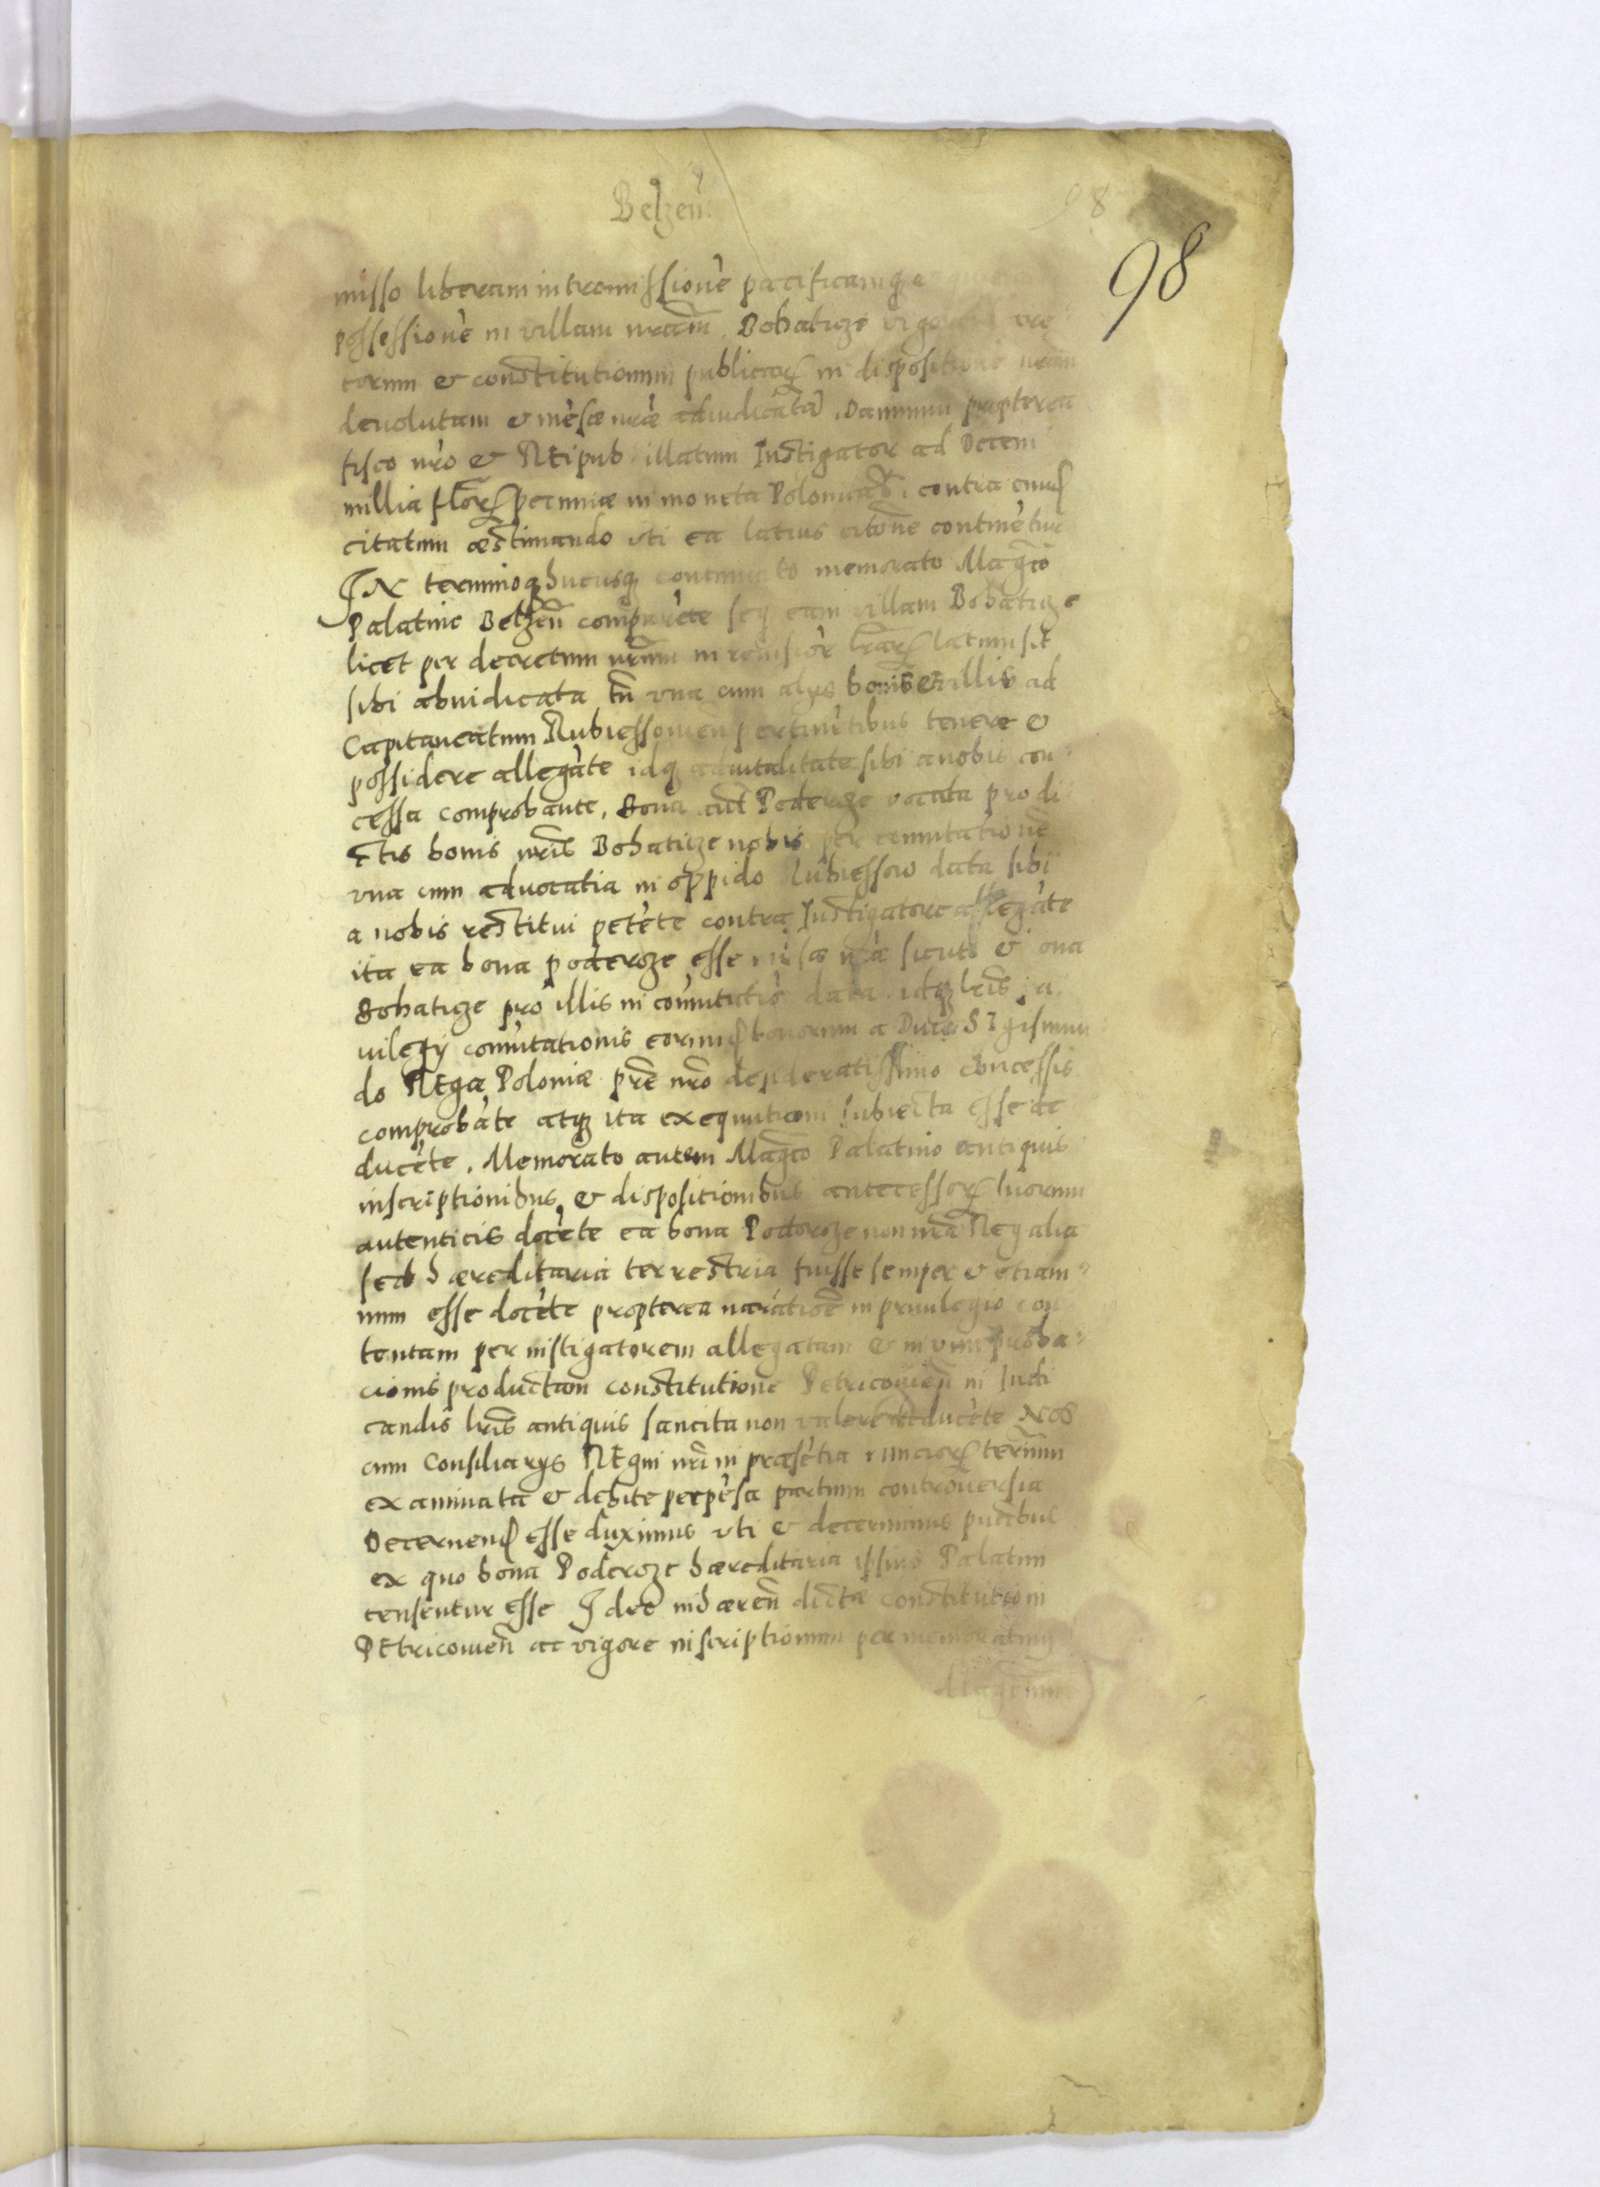 Belzeñ.
98
98
misso liberam intromissionẽ pacificamq̃
possessionẽ in villam nrãm Bohatize vigore
torum & constitutionum publicar̃ in dispositionẽ nrãm
deuolutam & mẽsæ nræ adiudicatã, Damnum propterea
fisco nrõ & REipub illatum Instigator ad Decem
millia flor̃ pecuniæ in moneta Polonicali, contra eund̃
citatum æstimando vti ea latius citõne continẽtur
IN terminoq̃ hucusq̃ continuato memorato Mag̃co
Palatino Belzeñ comparẽte seq̃ eam villam Bohatize
licet per decretum nrũm in reuisiõe lrãr̃ latum sit
sibi abiudicata tñ vna cum alys bonis & villis ad
Capitaneatum Rubiessouien pertinẽtibus tenere &
possidere allegãte idq̃ aduitalitate sibi a nobis con-
cessa comprobante, Bona aũt Poderoze vocata pro di
ctis bonis nrĩs Bohatize nobis per cõmutationẽ
vna cum aduocatia in oppido Rubiessow data sibi
a nobis restitui petẽte contra Instigatore allegãte
ita ea bona poderoze esse mẽsæ nrã sicuti & ona
Bohatize pro illis in cõmutatiõ data idq̃ lrĩs
uilegy cõmutationis eorund̃ bonorum a Diuo Sigismun
do REge Poloniæ prẽ nrõ desideratissimo concessis
comprobãte atq̃ ita exequutioni subiecta esse de
ducẽte, Memorato autem Mag̃co Palatino antiquis
inscriptionibus & dispositionibus antecessor̃ suorum
autenticis docẽte ea bona Poderoze non nrã Regalia
sed hæreditaria terrestria fuisse semper & etiam-
num esse docẽte propterea narratiõẽ in priuilegio con
tentam per instigatorem allegatam & in vim proba-
cionis productam constitutione Petricouieñ in Iudi
candis lrĩs antiquis sancita non valere deducẽte NOS
cum Consiliarys REgni nrĩ in præsẽtia nuncior̃ terrũm
examinata & debite perpẽsa partium controuersia
Decernend̃ esse duximus vti & decernimus
ex quo bona Poderoze hæreditaria ipsius Palatini
censentur esse Ideo inhæreñ dictæ constitutioni
PEtricouieñ ac vigore inscriptionum per memoratum
Mag̃cum